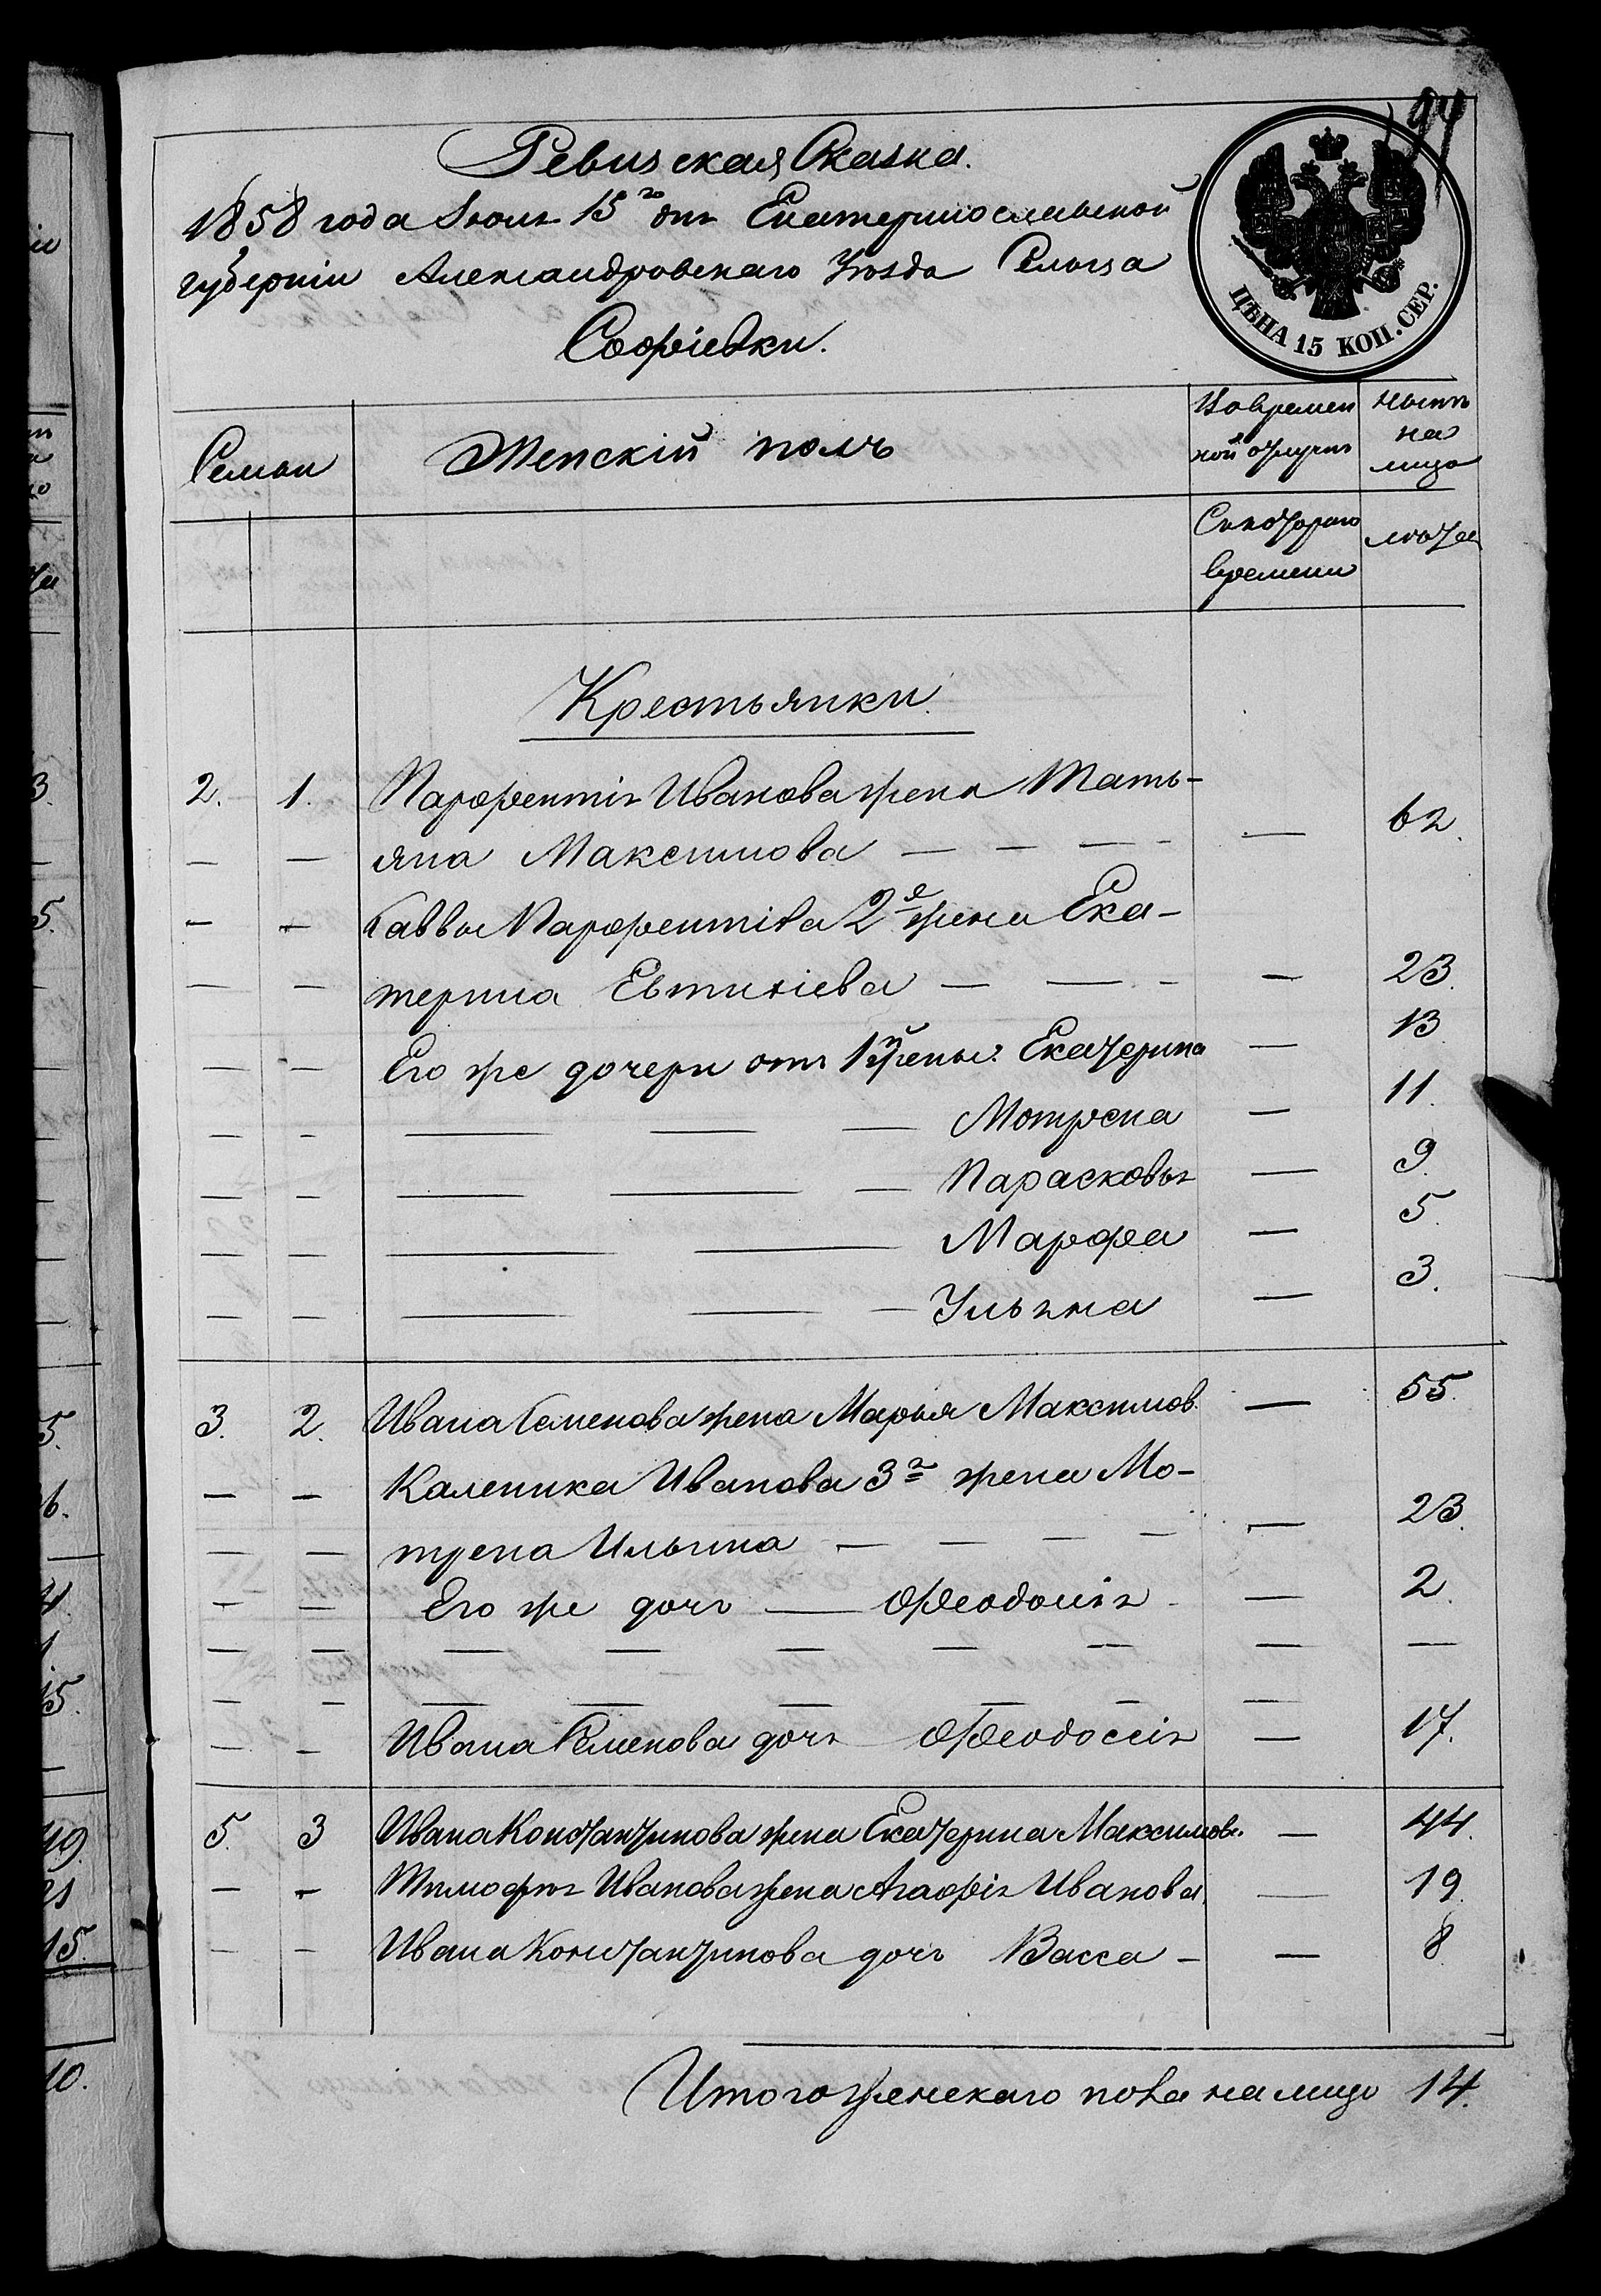 94
Ревизская Сказка.
1858 года Іюня 15го дня Екатеринославской
губерніи Александровскаго Уѣзда Сельца
Софіевки.
ЦѢНА 15 КОП. СЕР.
Семьи Женскій полъ Во времен ныне
ной отлучкѣ на
лицо
Съ котораго лѣта
времени
Крестьянки.
2. 1. Парфентія Иванова жена Тать-
— — яна Максимова — — — - — 62.
— — Саввы Парфентіева 2я жена Ека-
— — терина Евтихіева — — - — 23.
— — Его же дочери отъ 1й жены: Екатерина — 13
— — — — — Мотрена — 11.
— — — — — Парасковья — 9.
— — — — Марфа — 5.
— — — — — Ульяна — 3.
3. 2. Ивана Семенова жена Марья Максимов. — 55.
— — Каленика Иванова 3я жена Мо-
— — трена Ильина — — — — — 23.
— — Его же дочь — Феодосія — 2.
— — — — — — — — —
— — — — — — — —
— — Ивана Семенова дочь Феодоссія — 17.
5. 3 Ивана Константинова жена Екатерина Максимов. — 44.
— — Тимофѣя Иванова жена Агафія Иванова — 19
— — Ивана Константинова дочь Васса — — 8
Итого женскаго пола на лицо 14.